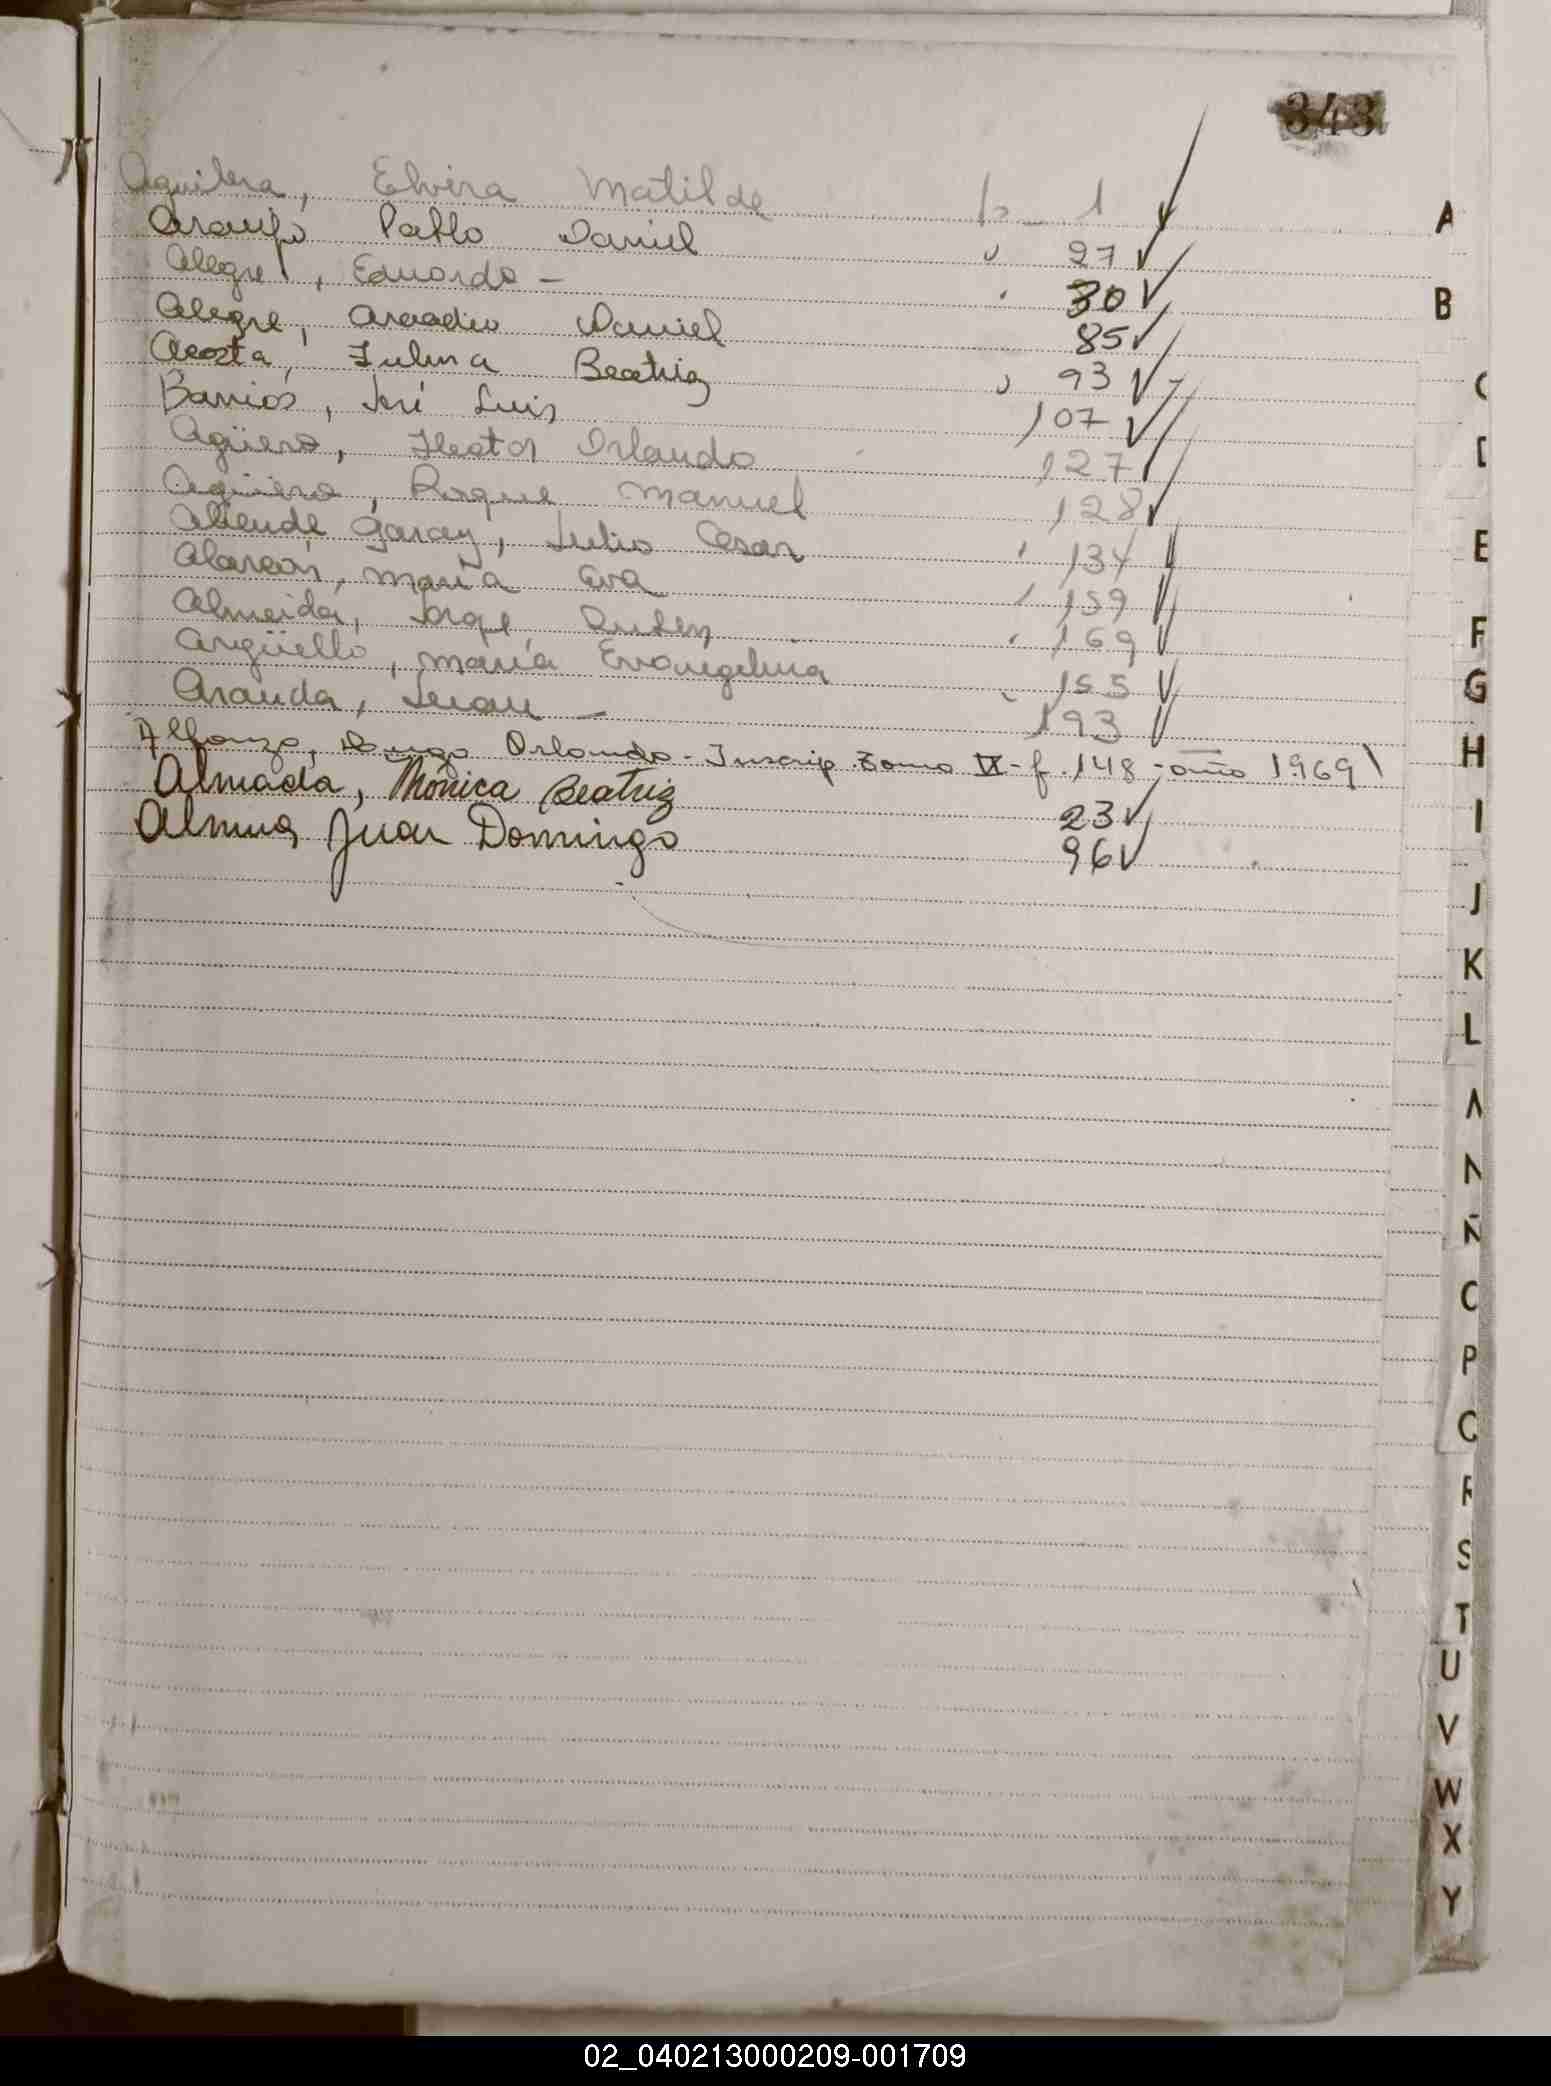 343
Aguilera, Elvira Matilde f 1
Araujo Pablo Daniel " 27
Alegre, Eduardo - " 30
Alegre, Arcadio Daniel 85
Acosta, Julma Beatriz " 93
Barrios, José Luis 107
Agüero, Hector Orlando 127
Agüero, Roque Manuel 128
Allende Garay, Julio Cesar " 134
Alarcón, María Eva " 159
Almeida, Jorge Ruben " 169
Argüello, María Evangelina " 155
Aranda, Juan - 193
Alfonzo, Hugo Orlando - Inscrip Tomo IX - f. 148 - año 1969
Almada, Mónica Beatriz 23
Juan Domingo 96
A
B
C
D
E
F
G
H
I
J
K
L
M
N
Ñ
O
P
Q
R
S
T
U
V
W
X
Y
02_040213000209-001709